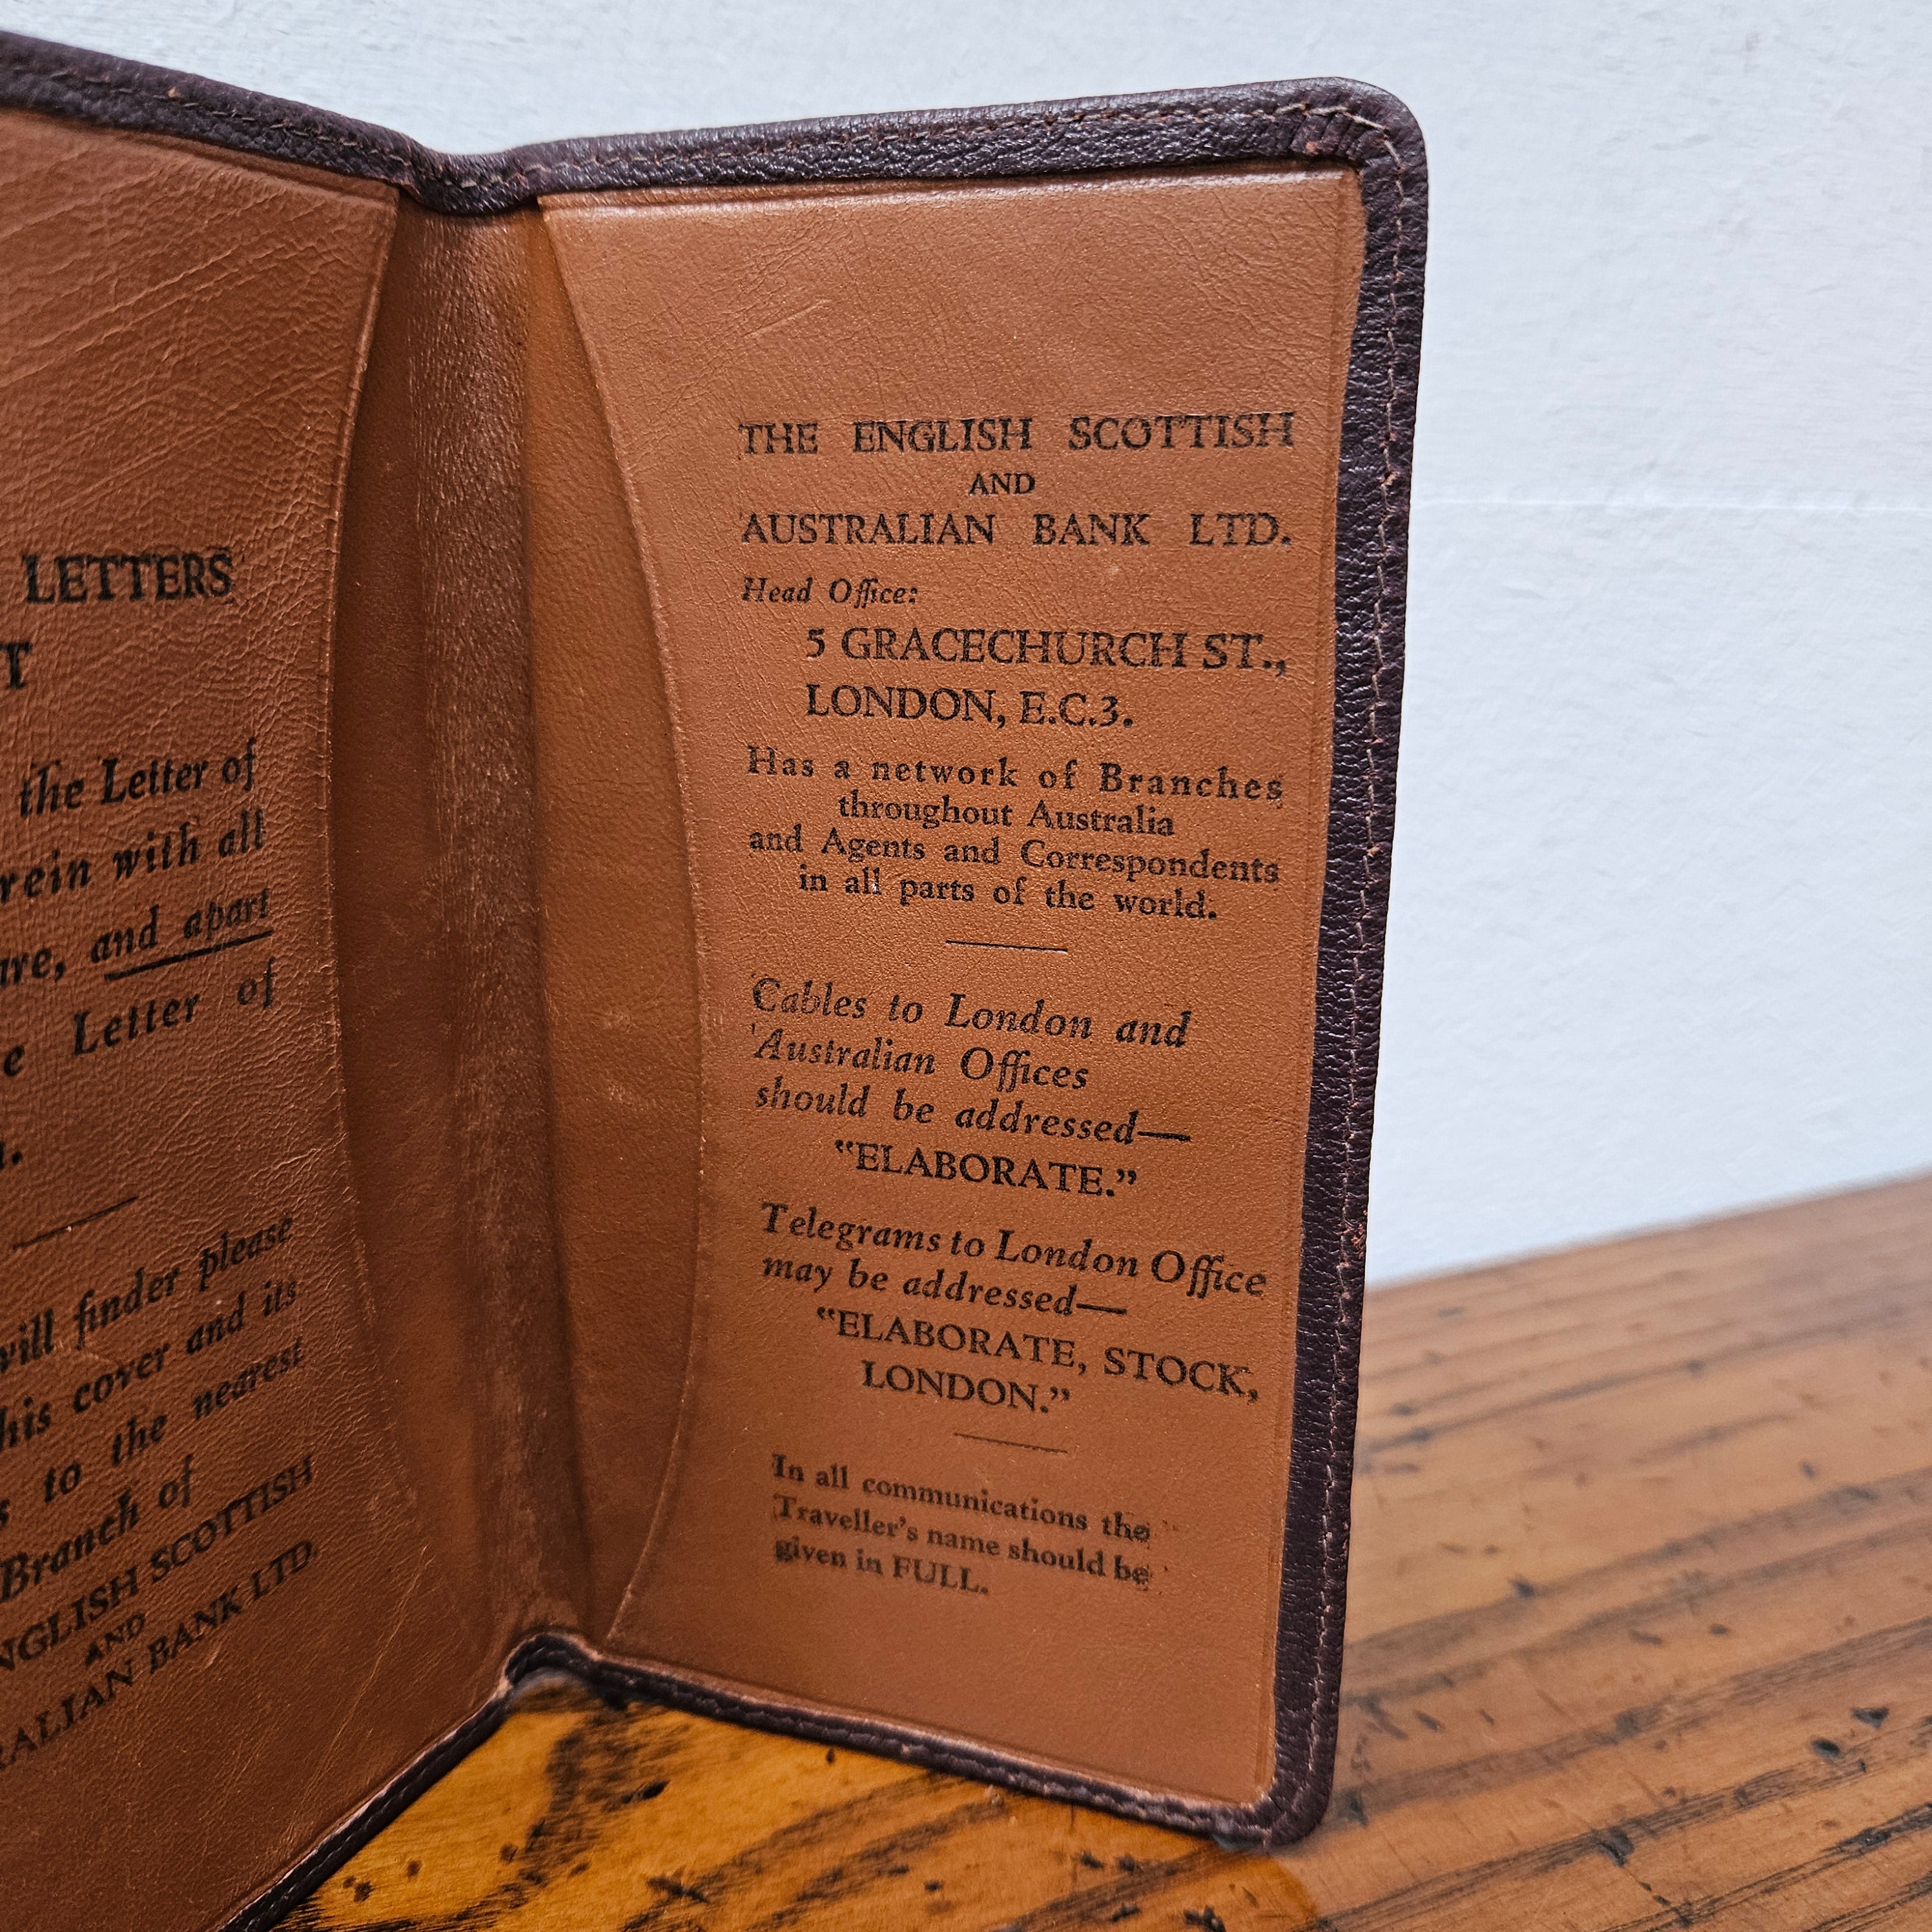 LETTERS
T
the Letter of
rein with all
are, and apart
e Letter of
will finder please
his cover and its
s to the nearest
Branch of
NGLISH SCOTTISH
AND
RALIAN BANK LTD.
THE ENGLISH SCOTTISH
AND
AUSTRALIAN BANK LTD.
Head Office:
5 GRACECHURCH ST.,
LONDON, E.C.3.
Has a network of Branches
throughout Australia
and Agents and Correspondents
in all parts of the world.
Cables to London and
Australian Offices
should be addressed—
"ELABORATE."
Telegrams to London Office
may be addressed—
"ELABORATE, STOCK,
LONDON."
In all communications the
Traveller's name should be
given in FULL.